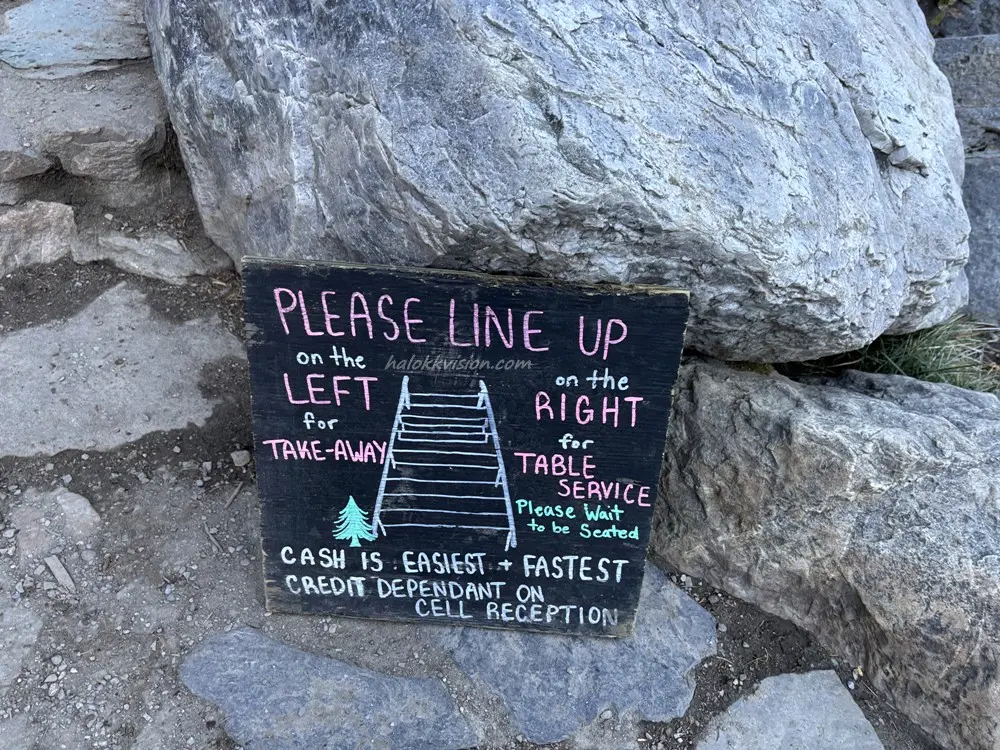 PLEASE LINE UP
halokkvision.com
on the
LEFT
for
TAKE-AWAY
on the
RIGHT
for
TABLE
SERVICE
Please Wait
to be Seated
CASH IS EASIEST + FASTEST
CREDIT DEPENDANT ON
CELL RECEPTION